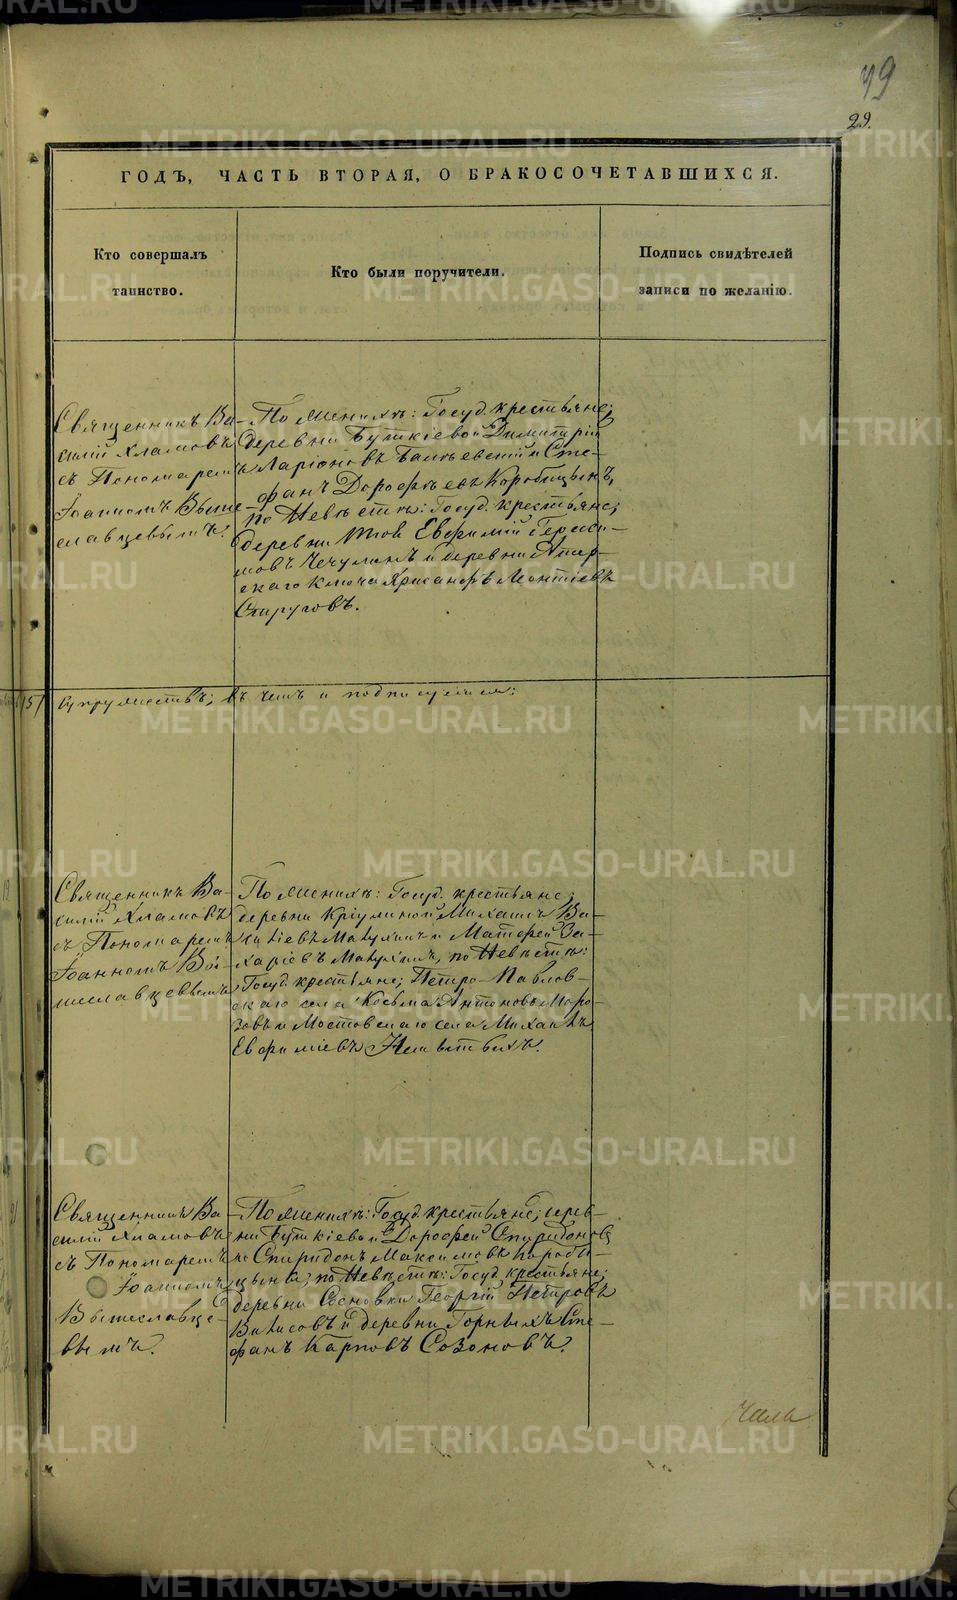 49
29.
ГОДЪ, ЧАСТЬ ВТОРАЯ, О БРАКОСОЧЕТАВШИХСЯ.
Кто совершалъ
таинство.
Кто были поручители.
Подпись свидѣтелей
записи по желанію.
Священникъ Ва-
силій Хламовъ
съ Пономаремъ
Іоанномъ Выше-
славцевымъ.
По Женихѣ: Госуд. крестьяне;
деревни Буткіевой Димитрій
Ларіоновъ и Сте-
фанъ Дорофѣевъ Коробицынъ,
по Невѣстѣ: Госуд. крестьяне;
деревни Евфимій Гераси-
мовъ Чечулинъ и деревни
скаго Ключа Хрисанфъ Леонтіевъ
Стругов​ъ.
супружествѣ; въ чемъ и подписуемся:
Священникъ Ва-
силій Хламовъ
съ Пономаремъ
Іоанномъ Вы-
шеславцевымъ
По Женихѣ: Госуд. крестьяне;
деревни Михаилъ Ва-
силіевъ и Матфей За-
харіовъ по Невѣстѣ:
Госуд. крестьяне; Петро-Павлов-
скаго села Косьма Антоновъ Моро-
зовъ и Мостовскаго села Михаилъ
Евфиміевъ
Священникъ Ва-
силій Хламовъ
съ Пономаремъ
Іоанномъ
Вышеславце-
вымъ.
По Женихѣ: Госуд. крестьяне; дерев-
ни Буткіевой Дорофей Спиридоновъ
и Спиридонъ Максимовъ Короби-
цыны, по Невѣстѣ: Госуд. крестьяне;
деревни Сосновки Георгій Петровъ
и деревни Горныхъ Сте-
фанъ Карповъ Созоновъ.
METRIKI.GASO-URAL.RU